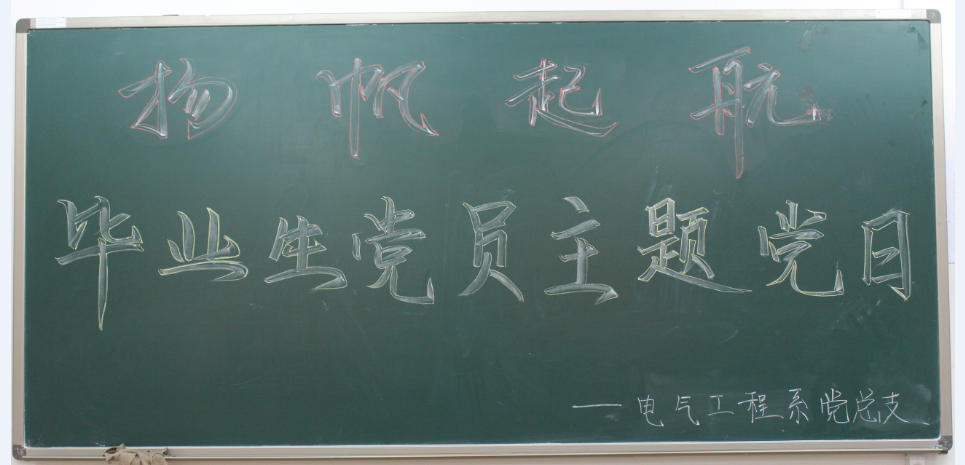 扬帆起航
毕业生党员主题党日
——电气工程系党总支